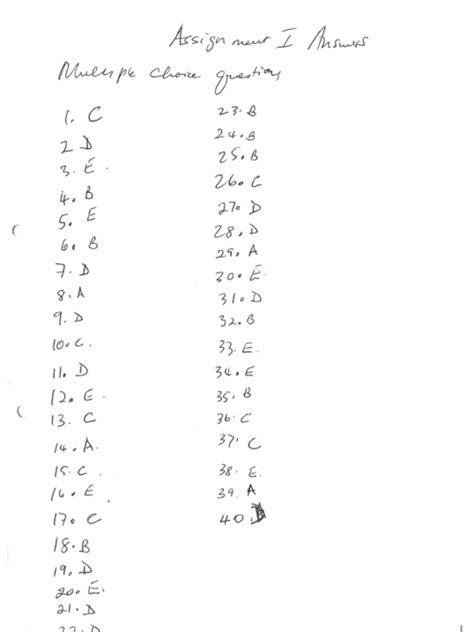 Assignment I Answers
Multiple choice questions
1. C
2 D
3. E.
4. B
5. E
6. B
7. D
8. A
9. D
10. C.
11. D
12. E.
13. C
14. A.
15. C.
16. E
17. C
18. B
19. D
20. E.
21. D
22. D
23. B
24. B
25. B
26. C
27. D
28. D
29. A
30. E.
31. D
32. B
33. E.
34. E
35. B
36. C
37. C
38. E.
39. A
40. D